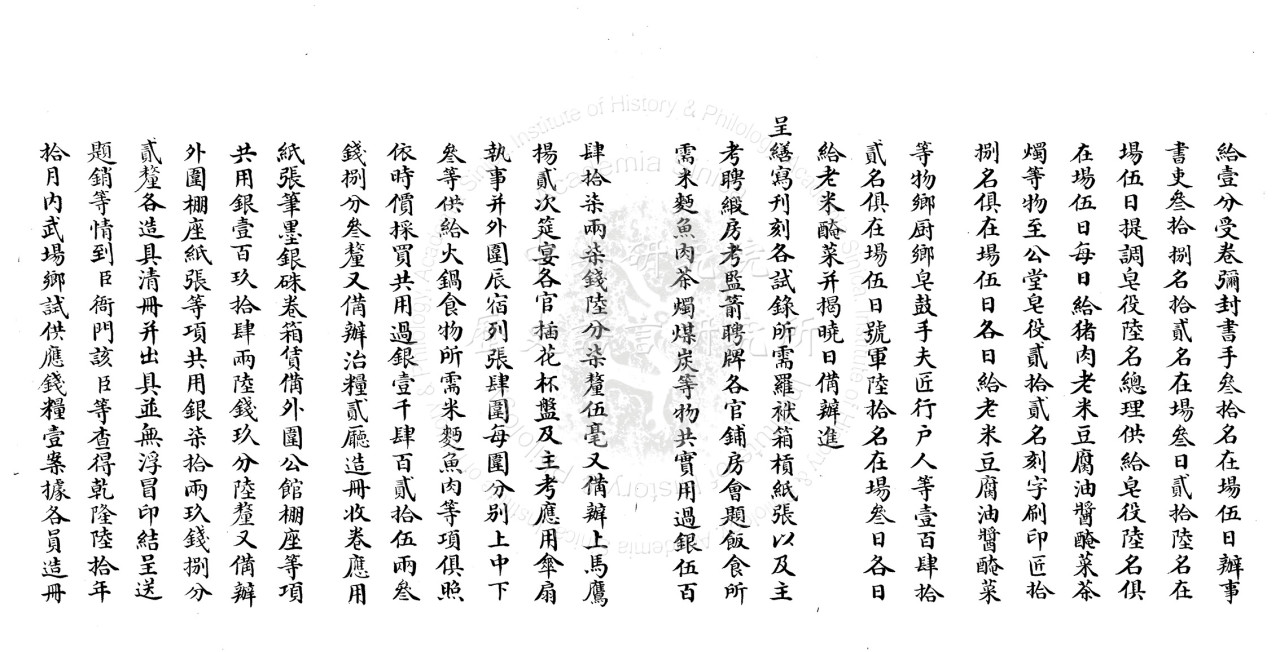 給壹分受卷彌封書手叁拾名在場伍日辦事
書吏叁拾捌名拾貳名在場叁日貳拾陸名在
場伍日提調皂役陸名總理供給皂役陸名俱
在場伍日每日給猪肉老米豆腐油醬醃菜茶
燭等物至公堂皂役貳拾貳名刻字刷印匠拾
捌名俱在場伍日各日給老米豆腐油醬醃菜
等物鄉厨鄉皂鼓手夫匠行户人等壹百肆拾
貳名俱在場伍日號軍陸拾名在場叁日各日
給老米醃菜并揭曉日備辦進
呈繕寫刊刻各試錄所需羅袱箱槓紙張以及主
考聘緞房考監箭聘牌各官鋪房會題飯食所
需米麵魚肉茶燭煤炭等物共實用過銀伍百
肆拾柒兩柒錢陸分柒釐伍毫又備辦上馬鷹
揚貳次筵宴各官插花杯盤及主考應用傘扇
執事并外圍辰宿列張肆圍每圍分別上中下
叁等供給火鍋食物所需米麵魚肉等項俱照
依時價採買共用過銀壹千肆百貳拾伍兩叁
錢捌分叁釐又備辦治糧貳廳造冊收卷應用
紙張筆墨銀硃卷箱賃備外圍公館棚座等項
共用銀壹百玖拾肆兩陸錢玖分陸釐又備辦
外圍棚座紙張等項共用銀柒拾兩玖錢捌分
貳釐各造具清冊并出具並無浮冒印結呈送
題銷等情到臣衙門該臣等查得乾隆陸拾年
拾月内武場鄉試供應錢糧壹案據各員造冊